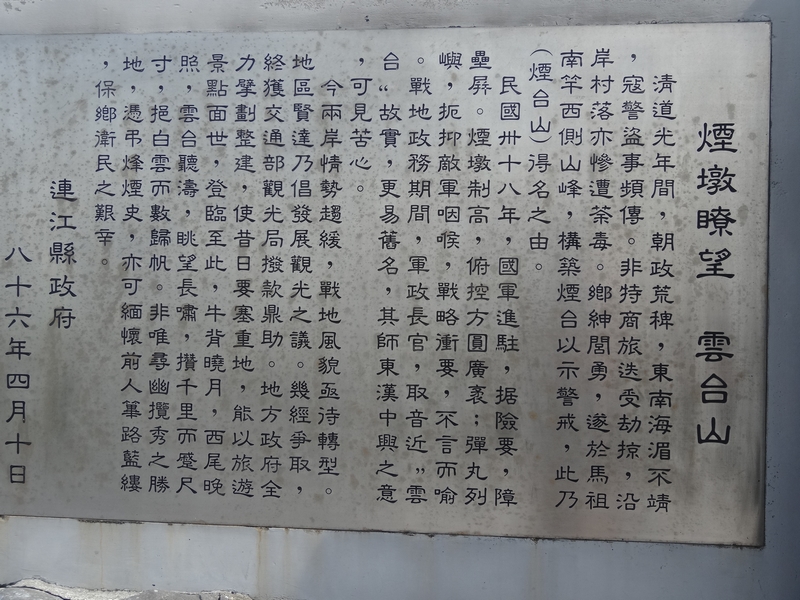 煙墩瞭望　雲台山
清道光年間，朝政荒稗，東南海湄不靖
，寇警盜事頻傳。非特商旅迭受劫掠，沿
岸村落亦慘遭荼毒。鄉紳閭勇，遂於馬祖
南竿西側山峰，構築煙台以示警戒，此乃
(煙台山)得名之由。
民國卅十八年，國軍進駐，据險要，障
壘屏。煙墩制高，俯控方圓廣袤；彈丸列
嶼，扼抑敵軍咽喉，戰略衝要，不言而喻
。戰地政務期間，軍政長官，取音近"雲
台"故實，更易舊名，其師東漢中興之意
，可見苦心。
今兩岸情勢趨緩，戰地風貌亟待轉型。
地區賢達乃倡發展觀光之議。幾經爭取，
終獲交通部觀光局撥款鼎助。地方政府全
力擘劃整建，使昔日要塞重地，能以旅遊
景點面世，登臨至此，牛背曉月，西尾晚
照，雲台聽濤，眺望長嘯，攢千里而蹙尺
寸，挹白雲而數歸帆。非唯尋幽攬秀之勝
地，憑弔烽煙史，亦可緬懷前人篳路藍縷
，保鄉衛民之艱辛。
連江縣政府
八十六年四月十日